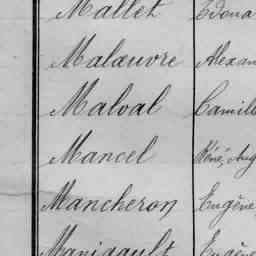 Mallet Edoua
Malœuvre Alexan
Malval Camille
Mancel Réné, Aug
Mancheron Eugène
Manigault Eugène